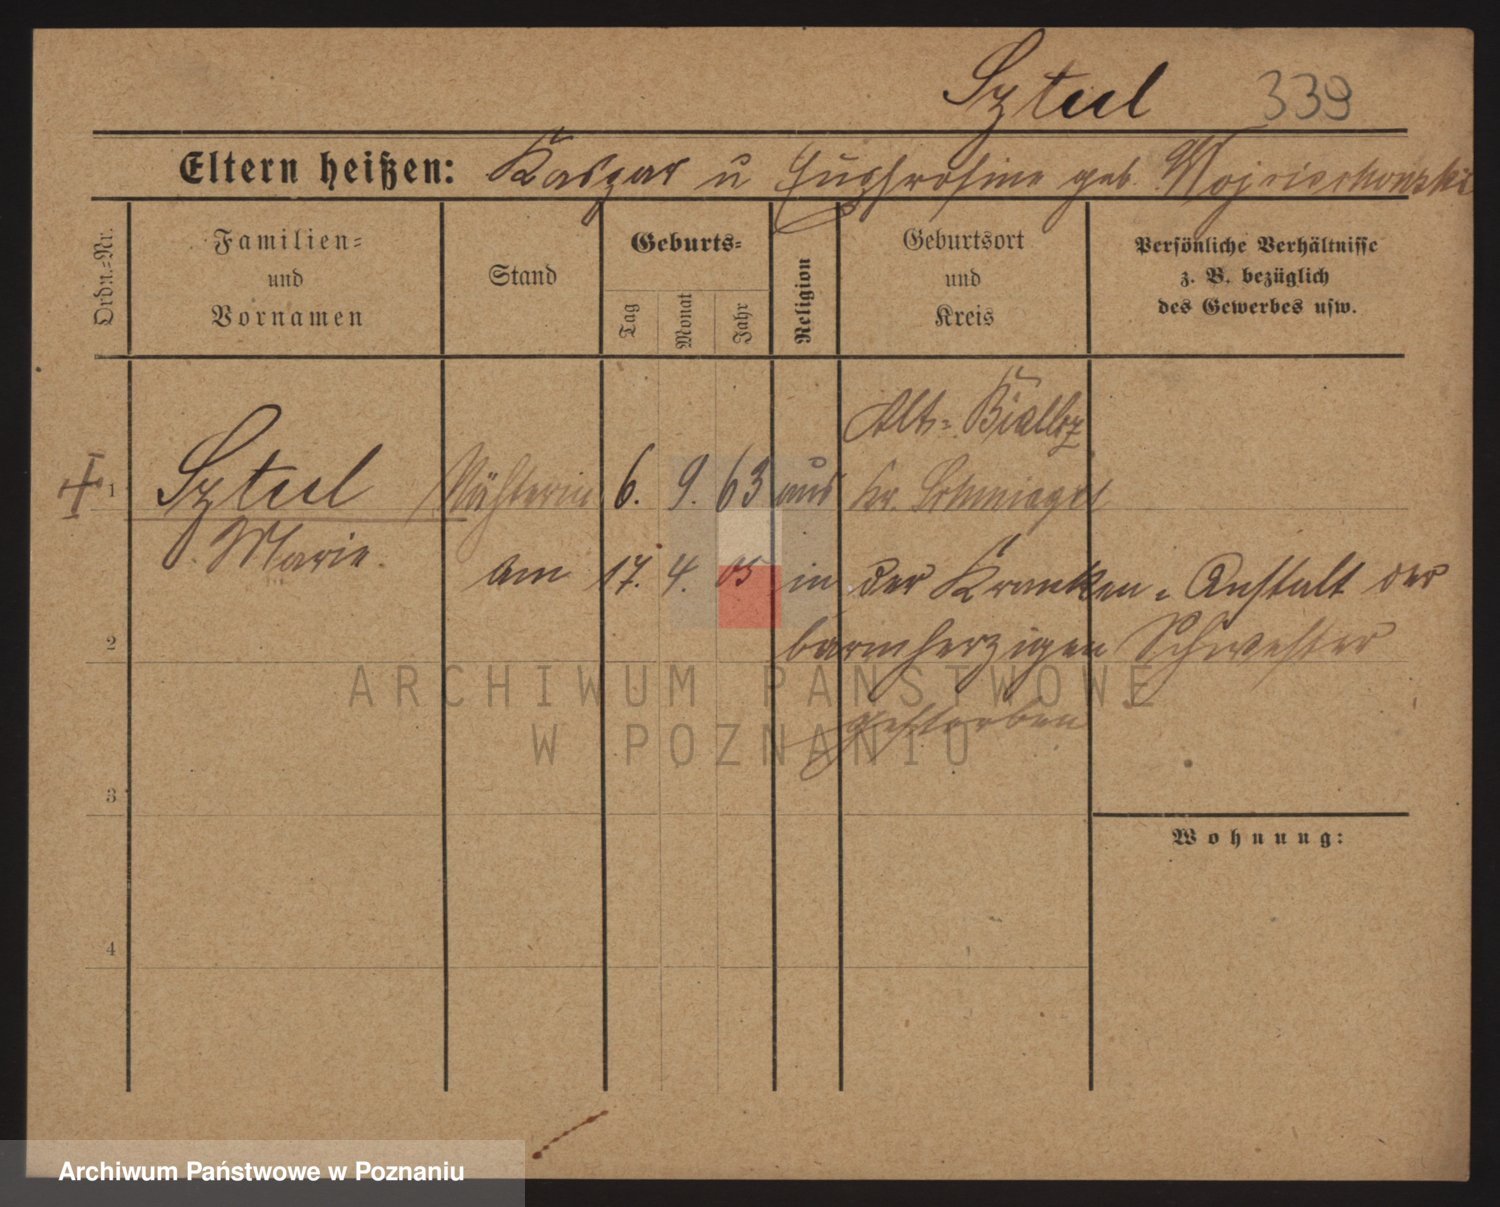 Sztul 339
Eltern heißen: Kaspar u Euphrosine geb. Wojciechowski
Ordn.=Nr.
Familien=
und
Vornamen
Stand
Geburts=
Tag
Monat
Jahr
Religion
Geburtsort
und
Kreis
Persönliche Verhältnisse
z. B. bezüglich
des Gewerbes usw.
Alt=
1 Sztul Nähterin 6. 9. 63 aus Kr. Schmiegel
Marie. am 17. 4. 05 in der Kranken= Anstalt der
2 barmherzigen Schwester
gestorben
ARCHIWUM PAŃSTWOWE
W POZNANIU
3
Wohnung:
4
Archiwum Państwowe w Poznaniu